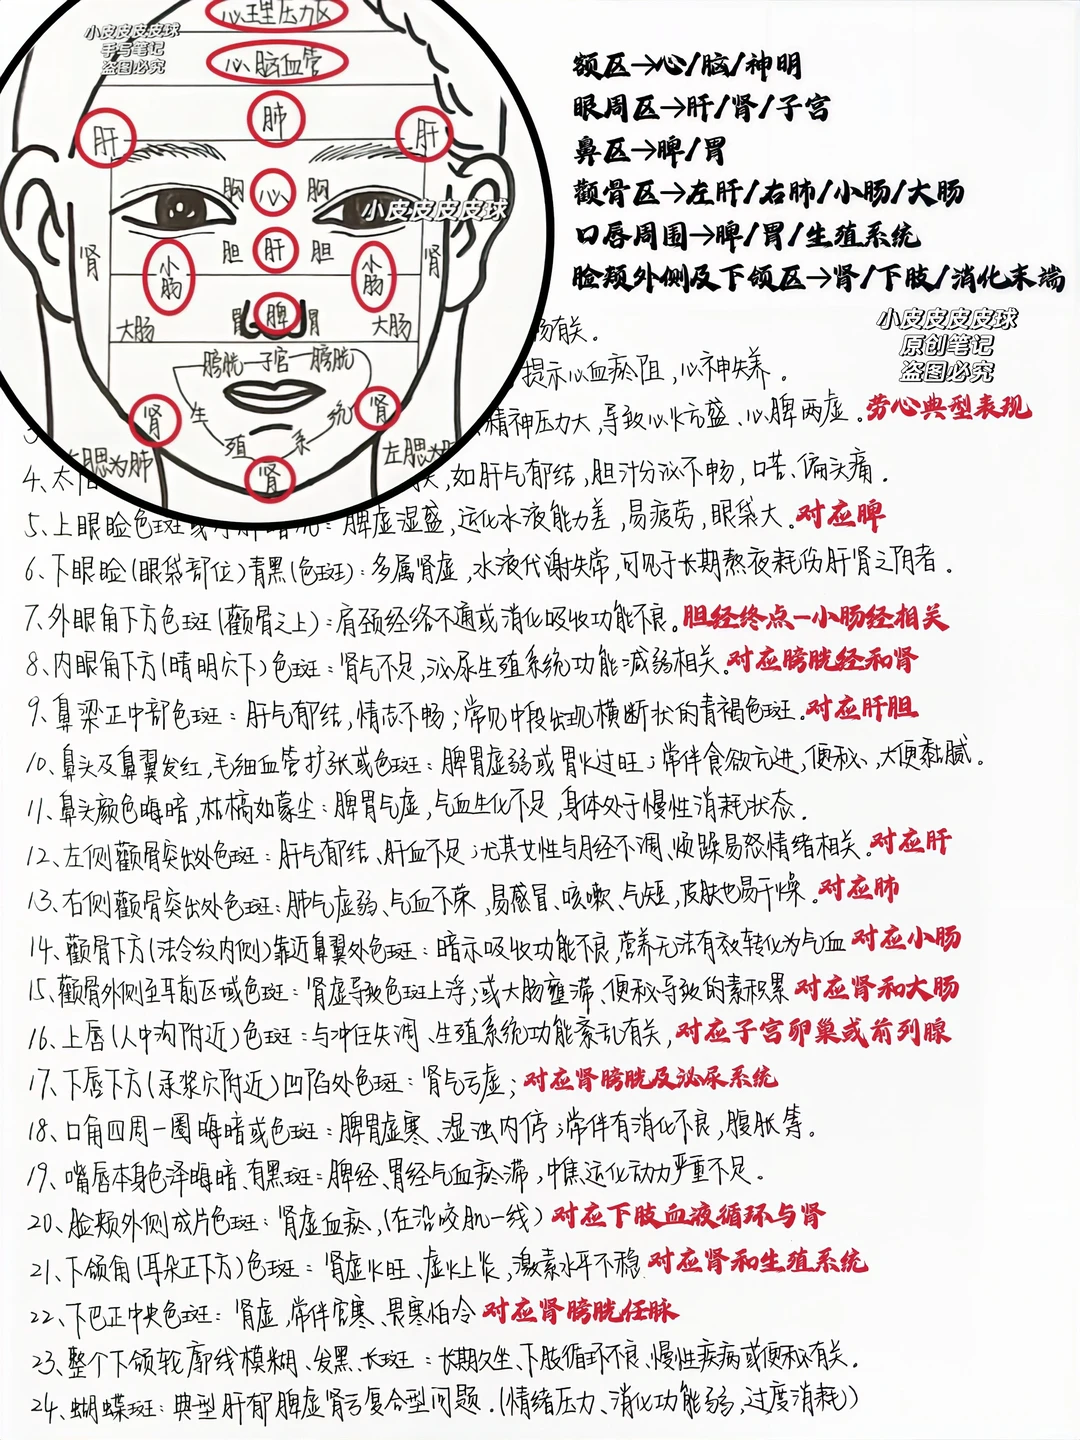 心理压力区
小皮皮皮皮球
手写笔记
盗图必究
心脑血管
肺
肝
肝
胸
心
胸
小皮皮皮皮球
肾
小肠
胆
肝
胆
小肠
肾
大肠
胃
脾
胃
大肠
膀胱—子宫—膀胱
肾
生
殖
系
统
肾
肾
右腮为肺
左腮为
额区→心/脑/神明
眼周区→肝/肾/子宫
鼻区→脾/胃
颧骨区→左肝/右肺/小肠/大肠
口唇周围→脾/胃/生殖系统
脸颊外侧及下颌区→肾/下肢/消化末端
小皮皮皮皮球
原创笔记
盗图必究
畅有关。
提示心血瘀阻,心神失养。
精神压力大,导致心火亢盛、心脾两虚。劳心典型表现
4、太阳 ,如肝气郁结,胆汁分泌不畅,口苦、偏头痛。
5、上眼睑色斑 :脾虚湿盛,运化水液能力差,易疲劳,眼袋大。对应脾
6、下眼睑(眼袋部位)青黑(色斑):多属肾虚,水液代谢失常,可见于长期熬夜耗伤肝肾之阴者。
7、外眼角下方色斑(颧骨之上):肩颈经络不通或消化吸收功能不良。胆经终点—小肠经相关
8、内眼角下方(睛明穴下)色斑:肾气不足,泌尿生殖系统功能减弱相关。对应膀胱经和肾
9、鼻梁正中部色斑:肝气郁结,情志不畅;常见中段出现横断状的青褐色斑。对应肝胆
10、鼻头及鼻翼发红,毛细血管扩张或色斑:脾胃虚弱或胃火过旺;常伴食欲亢进,便秘、大便黏腻。
11、鼻头颜色晦暗,枯槁如蒙尘:脾胃气虚,气血生化不足,身体处于慢性消耗状态。
12、左侧颧骨突出处色斑:肝气郁结、肝血不足;尤其女性与月经不调、烦躁易怒情绪相关。对应肝
13、右侧颧骨突出处色斑:肺气虚弱、气血不荣,易感冒、咳嗽、气短,皮肤也易干燥。对应肺
14、颧骨下方(法令纹内侧)靠近鼻翼处色斑:暗示吸收功能不良,营养无法有效转化为气血 对应小肠
15、颧骨外侧至耳前区域色斑:肾虚导致色斑上浮;或大肠壅滞、便秘导致的毒素积累 对应肾和大肠
16、上唇(人中沟附近)色斑:与冲任失调、生殖系统功能紊乱有关,对应子宫卵巢或前列腺
17、下唇下方(承浆穴附近)凹陷处色斑:肾气亏虚;对应肾膀胱及泌尿系统
18、口角四周一圈晦暗或色斑:脾胃虚寒、湿浊内停;常伴有消化不良,腹胀等。
19、嘴唇本身色泽晦暗、有黑斑:脾经、胃经气血瘀滞,中焦运化动力严重不足。
20、脸颊外侧成片色斑:肾虚血瘀,(在沿咬肌一线)对应下肢血液循环与肾
21、下颌角(耳朵正下方)色斑:肾虚火旺、虚火上炎,激素水平不稳 对应肾和生殖系统
22、下巴正中央色斑:肾虚,常伴宫寒、畏寒怕冷 对应肾膀胱任脉
23、整个下颌轮廓线模糊、发黑、长斑:长期久坐、下肢循环不良、慢性疾病或便秘有关。
24、蝴蝶斑:典型肝郁脾虚肾亏复合型问题.(情绪压力、消化功能弱,过度消耗)